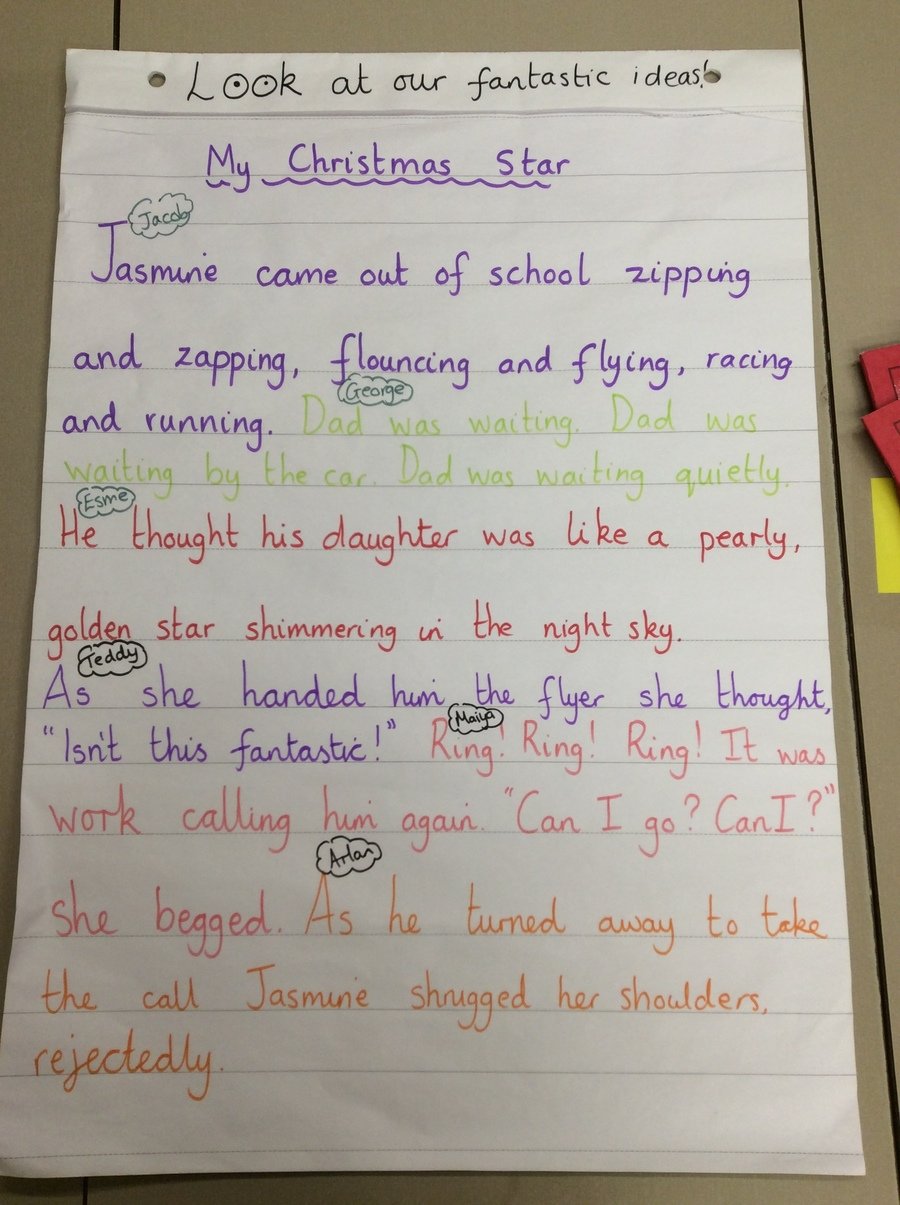 Look at our fantastic ideas!
My Christmas Star
Jacob
Jasmine came out of school zipping
and zapping, flouncing and flying, racing
George
and running. Dad was waiting. Dad was
waiting by the car. Dad was waiting quietly.
Esme
He thought his daughter was like a pearly,
golden star shimmering in the night sky.
Teddy
As she handed him the flyer she thought,
Maiya
"Isn't this fantastic!" Ring! Ring! Ring! It was
work calling him again. "Can I go? Can I?"
Arlan
she begged. As he turned away to take
the call Jasmine shrugged her shoulders,
rejectedly.